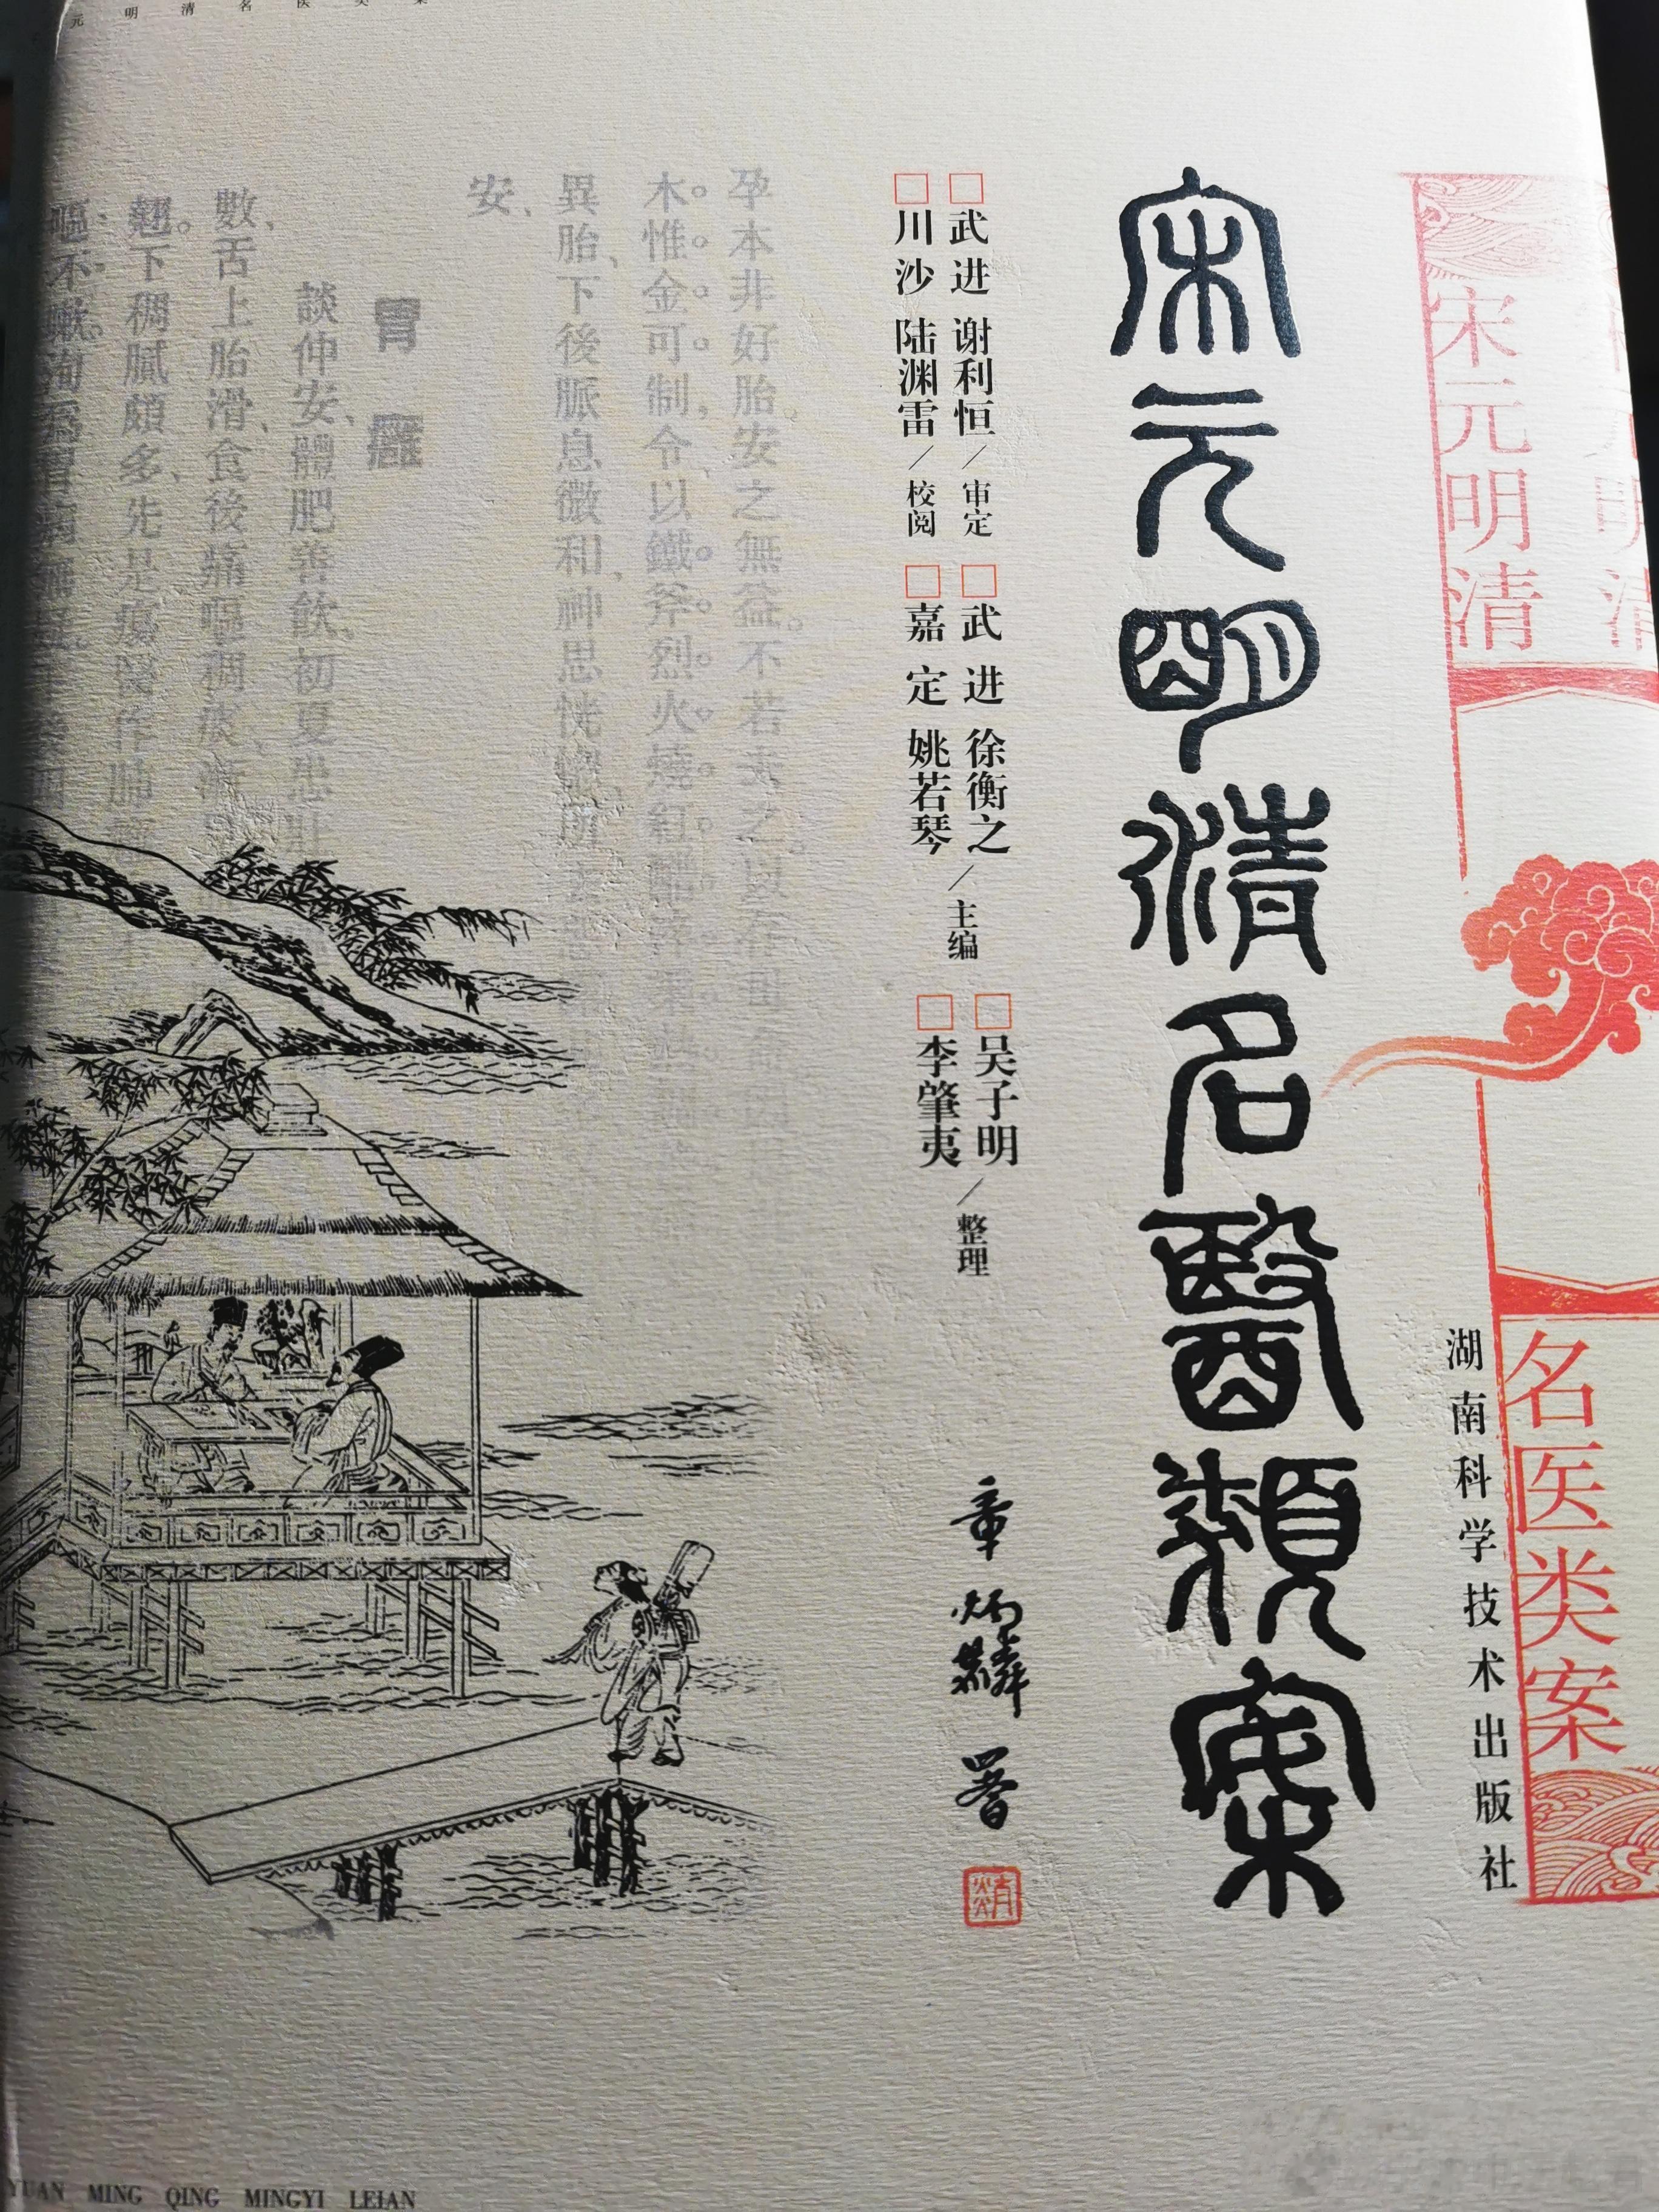 元明清名医类案
宋元明清
名医类案
湖南科学技术出版社
宋元明清名醫類案
□武进 谢利恒/审定
□川沙 陆渊雷/校阅
□武进 徐衡之
□嘉定 姚若琴/主编
□吴子明
□李肇夷/整理
章炳麟署
孕本非好胎安之無益。不若去之以存母
木。惟。金。可。制,令、以鐵。斧。烈。火。燒。紅。
異胎、下後脈息微和、神思恍惚
安、
胃癰
談仲安、體肥善飲、初夏患壯
數、舌上胎滑、食後痛嘔稠痰、漸
翹。下稠膩頗多、先是瘍醫作肺癰
嘔不嗽、洵爲胃病無疑
YUAN MING QING MINGYI LEIAN